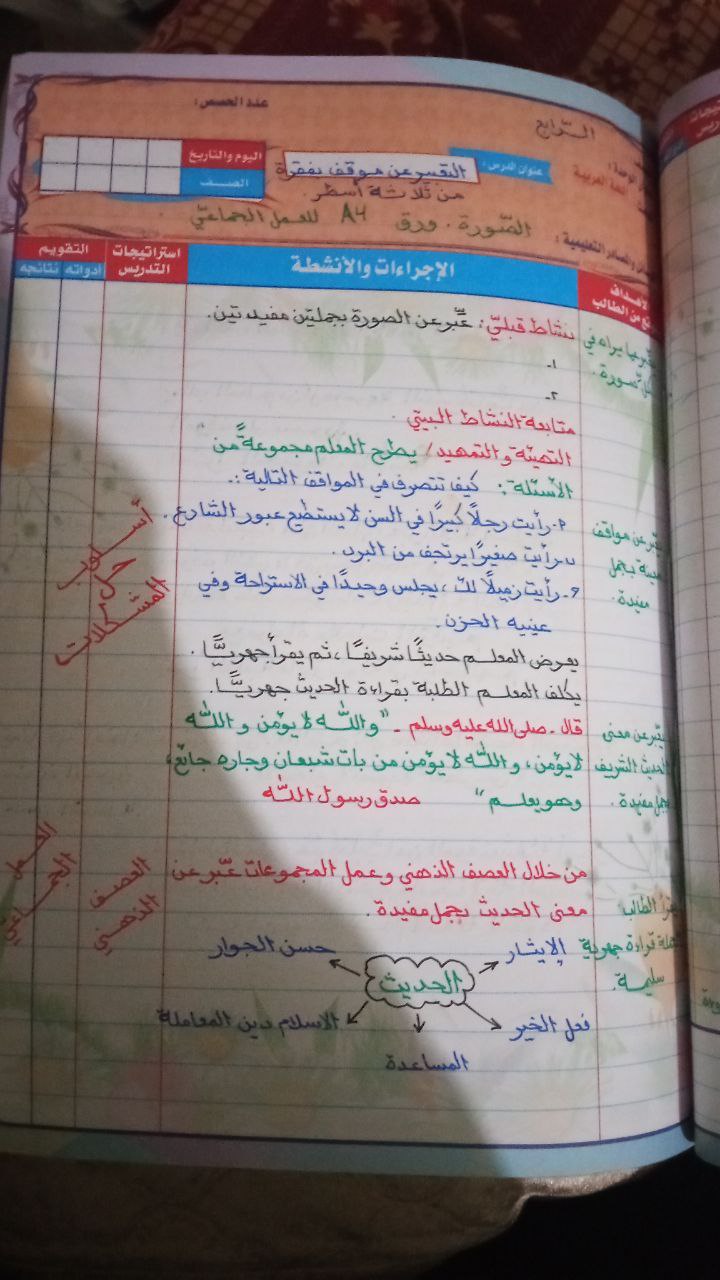 عدد الحصص:
الرابع
الوحدة:
اللغة العربية
عنوان الدرس:
التعبير عن موقف بفقرة
من ثلاثة أسطر
اليوم والتاريخ
الصف
والمصادر التعليمية:
الصّورة. ورق A4 للعمل الجماعيّ
من الطالب
الإجراءات والأنشطة
استراتيجيات التدريس
التقويم
أدواته
نتائجه
نشاط قبليّ: عبّر عن الصورة بجملتين مفيدتين.
١-
٢-
متابعة النشاط البيتي.
التهيئة والتمهيد/ يطرح المعلم مجموعةً من
الأسئلة: كيف تتصرف في المواقف التالية:.
رأيت رجلًا كبيرًا في السن لا يستطيع عبور الشارع.
رأيت صغيرًا يرتجف من البرد.
رأيت زميلًا لك، يجلس وحيدًا في الاستراحة وفي
عينيه الحزن.
يعرض المعلم حديثًا شريفًا، ثم يقرأ جهريًّا.
يكلف المعلم الطلبة بقراءة الحديث جهريًّا.
قال - صلى الله عليه وسلم - "والله لا يؤمن والله
لا يؤمن، والله لا يؤمن من بات شبعان وجاره جائع،
وهو يعلم" صدق رسول الله
من خلال العصف الذهني وعمل المجموعات عبّر عن
معنى الحديث بجمل مفيدة.
الحديث
الإيثار
حسن الجوار
فعل الخير
المساعدة
الاسلام دين المعاملة
ما يراه في
عن مواقف
بجمل
مفيدة.
عن معنى
الحديث الشريف
بجمل مفيدة.
الطالب
قراءة جهرية
سليمة.
أسلوب
حل
المشكلات
العصف
الذهني
العمل
الجماعيّ